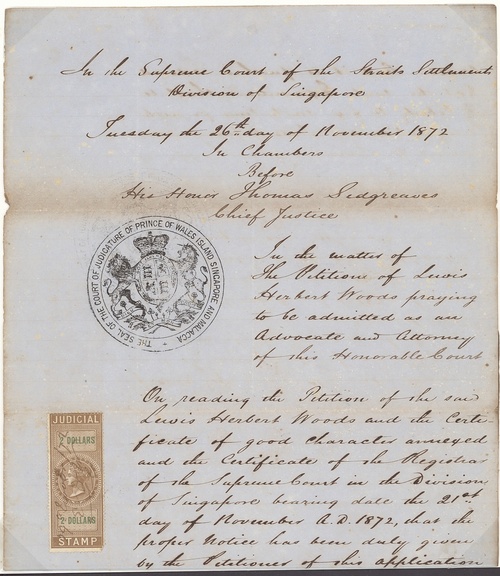 In the Supreme Court of the Straits Settlements
Division of Singapore
Tuesday the 26th day of November 1872
In Chambers
Before
His Honor Thomas Sidgreaves
Chief Justice
THE SEAL OF THE COURT OF JUDICATURE OF PRINCE OF WALES ISLAND SINGAPORE AND MALACCA
In the matter of
The Petition of Lewis
Herbert Woods praying
to be admitted as an
Advocate and Attorney
of this Honorable Court
On reading the Petition of the said
Lewis Herbert Woods and the Certi-
ficate of good character annexed
and the Certificate of the Registrar
of the Supreme Court in the Division
of Singapore bearing date the 21st
day of November A.D. 1872, that the
proper Notice has been duly given
by the Petitioner of this application
JUDICIAL
2 DOLLARS
2 DOLLARS
STAMP